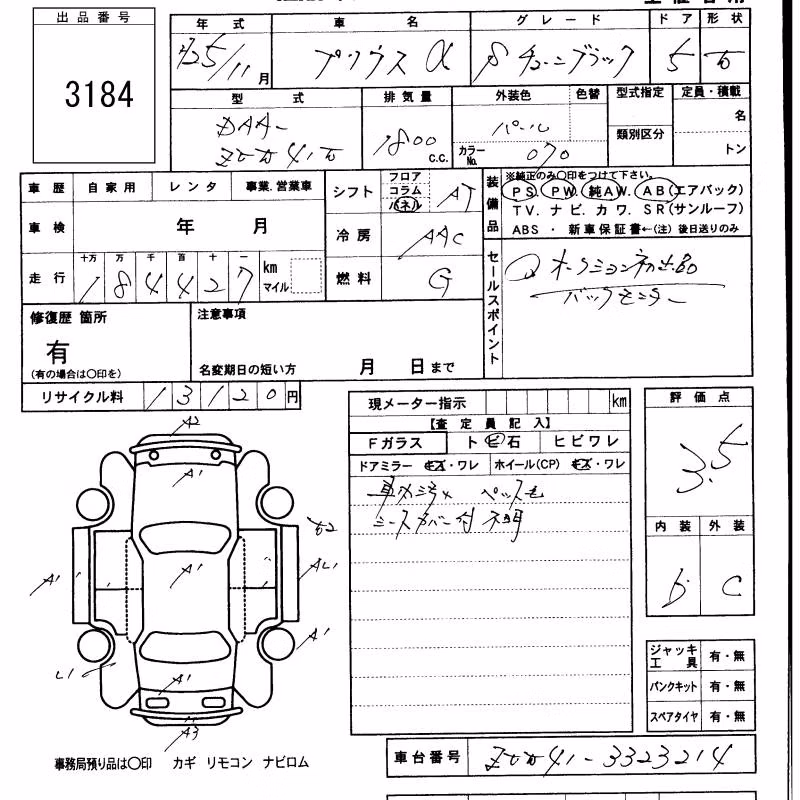 出品番号
3184
年式 車名 グレード ドア 形状
H25/11月 プリウス α S チューンブラック 5
型式 排気量 外装色 色替 型式指定 定員・積載
DAA-
ZVW41W 1800 c.c. パール 名
カラーNo. 070 類別区分 トン
車歴 自家用 レンタ 事業.営業車
車検 年 月
走行 十万 万 千 百 十 一
184427 km マイル
シフト フロア コラム パネル AT
冷房 AAC
燃料 G
装備品
※純正のみ○印をつけて下さい。
PS PW 純AW. AB(エアバック)
TV. ナビ. カワ. SR(サンルーフ)
ABS ・ 新車保証書←(注) 後日送りのみ
セールスポイント
オークション初出品
バックモニター
修復歴 箇所
有
(有の場合は○印を)
注意事項
名変期日の短い方 月 日まで
リサイクル料 13120円
現メーター指示 km
【査定員記入】
Fガラス トビ石 ヒビワレ
ドアミラー キズ・ワレ ホイール(CP) キズ・ワレ
シートカバー付 不明
評価点
3.5
内装 外装
b C
ジャッキ工具 有・無
パンクキット 有・無
スペアタイヤ 有・無
A2
A1
A1
A1
A1
A1
L1
A3
事務局預り品は○印 カギ リモコン ナビロム
車台番号 ZVW41-3323214